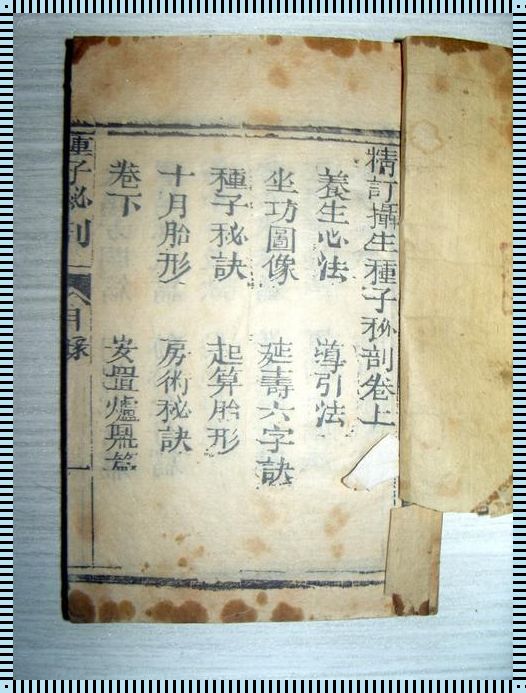 精訂攝生種子秘剖卷上
養生心法　導引法
坐功圖像　延壽六字訣
種子秘訣　起算胎形
十月胎形　房術秘訣
卷下　安置爐鼎篇
種子秘剖　目錄　一